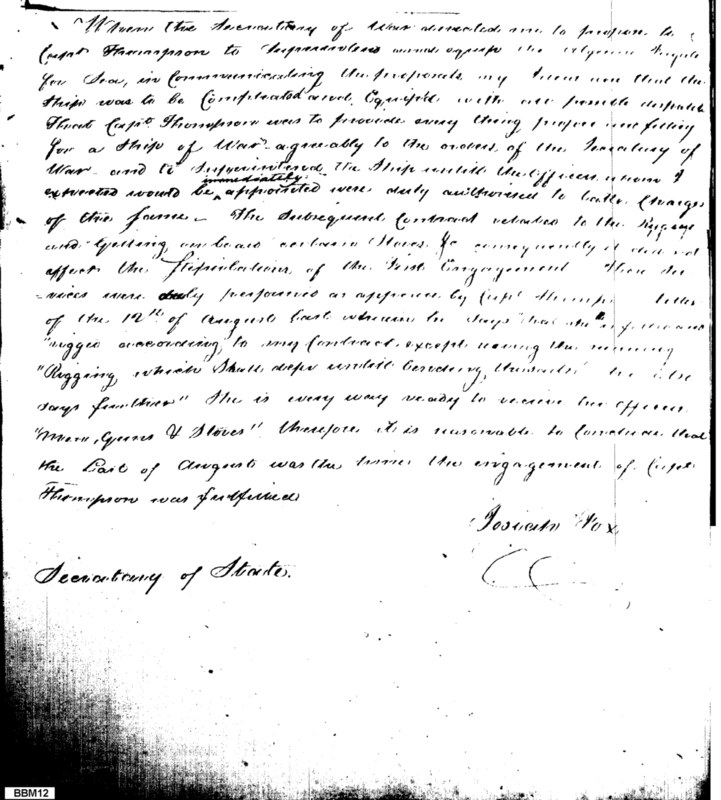 When the Secretary of War directed me to propose to
Capt Thompson to Superintend and equip the Algerine Frigate
for Sea, in Communicating the proposals my Ideas were that the
Ship was to be Compleated and Equip'd with all possible dispatch
That Capt. Thompson was to provide every thing proper and fitting
for a Ship of War agreably to the orders of the Secretary of
War and to Superintend the Ship untill the Officers whom I
expected would be immediately appointed were duly authorised to take Charge
of the same – The Subsequent Contract related to the Rigging
and Getting on board certain Stores &c consequently it did not
affect the Stipulations of the First Engagement These Ser
-vices were duly performed as appears by Capt Thomp letter
of the 12th of August last wherein he Says that she "is
"riggd according to my Contract except the running
"Rigging which Shall defer untill bending the sails" he also
says further "She is every way ready to receive her officers
"Men, Guns & Stores" therefore it is reasonable to Conclude that
the Last of August was the time the engagement of Capt
Thompson was fulfilled
Josiah Fox
Secretary of State.
BBM12